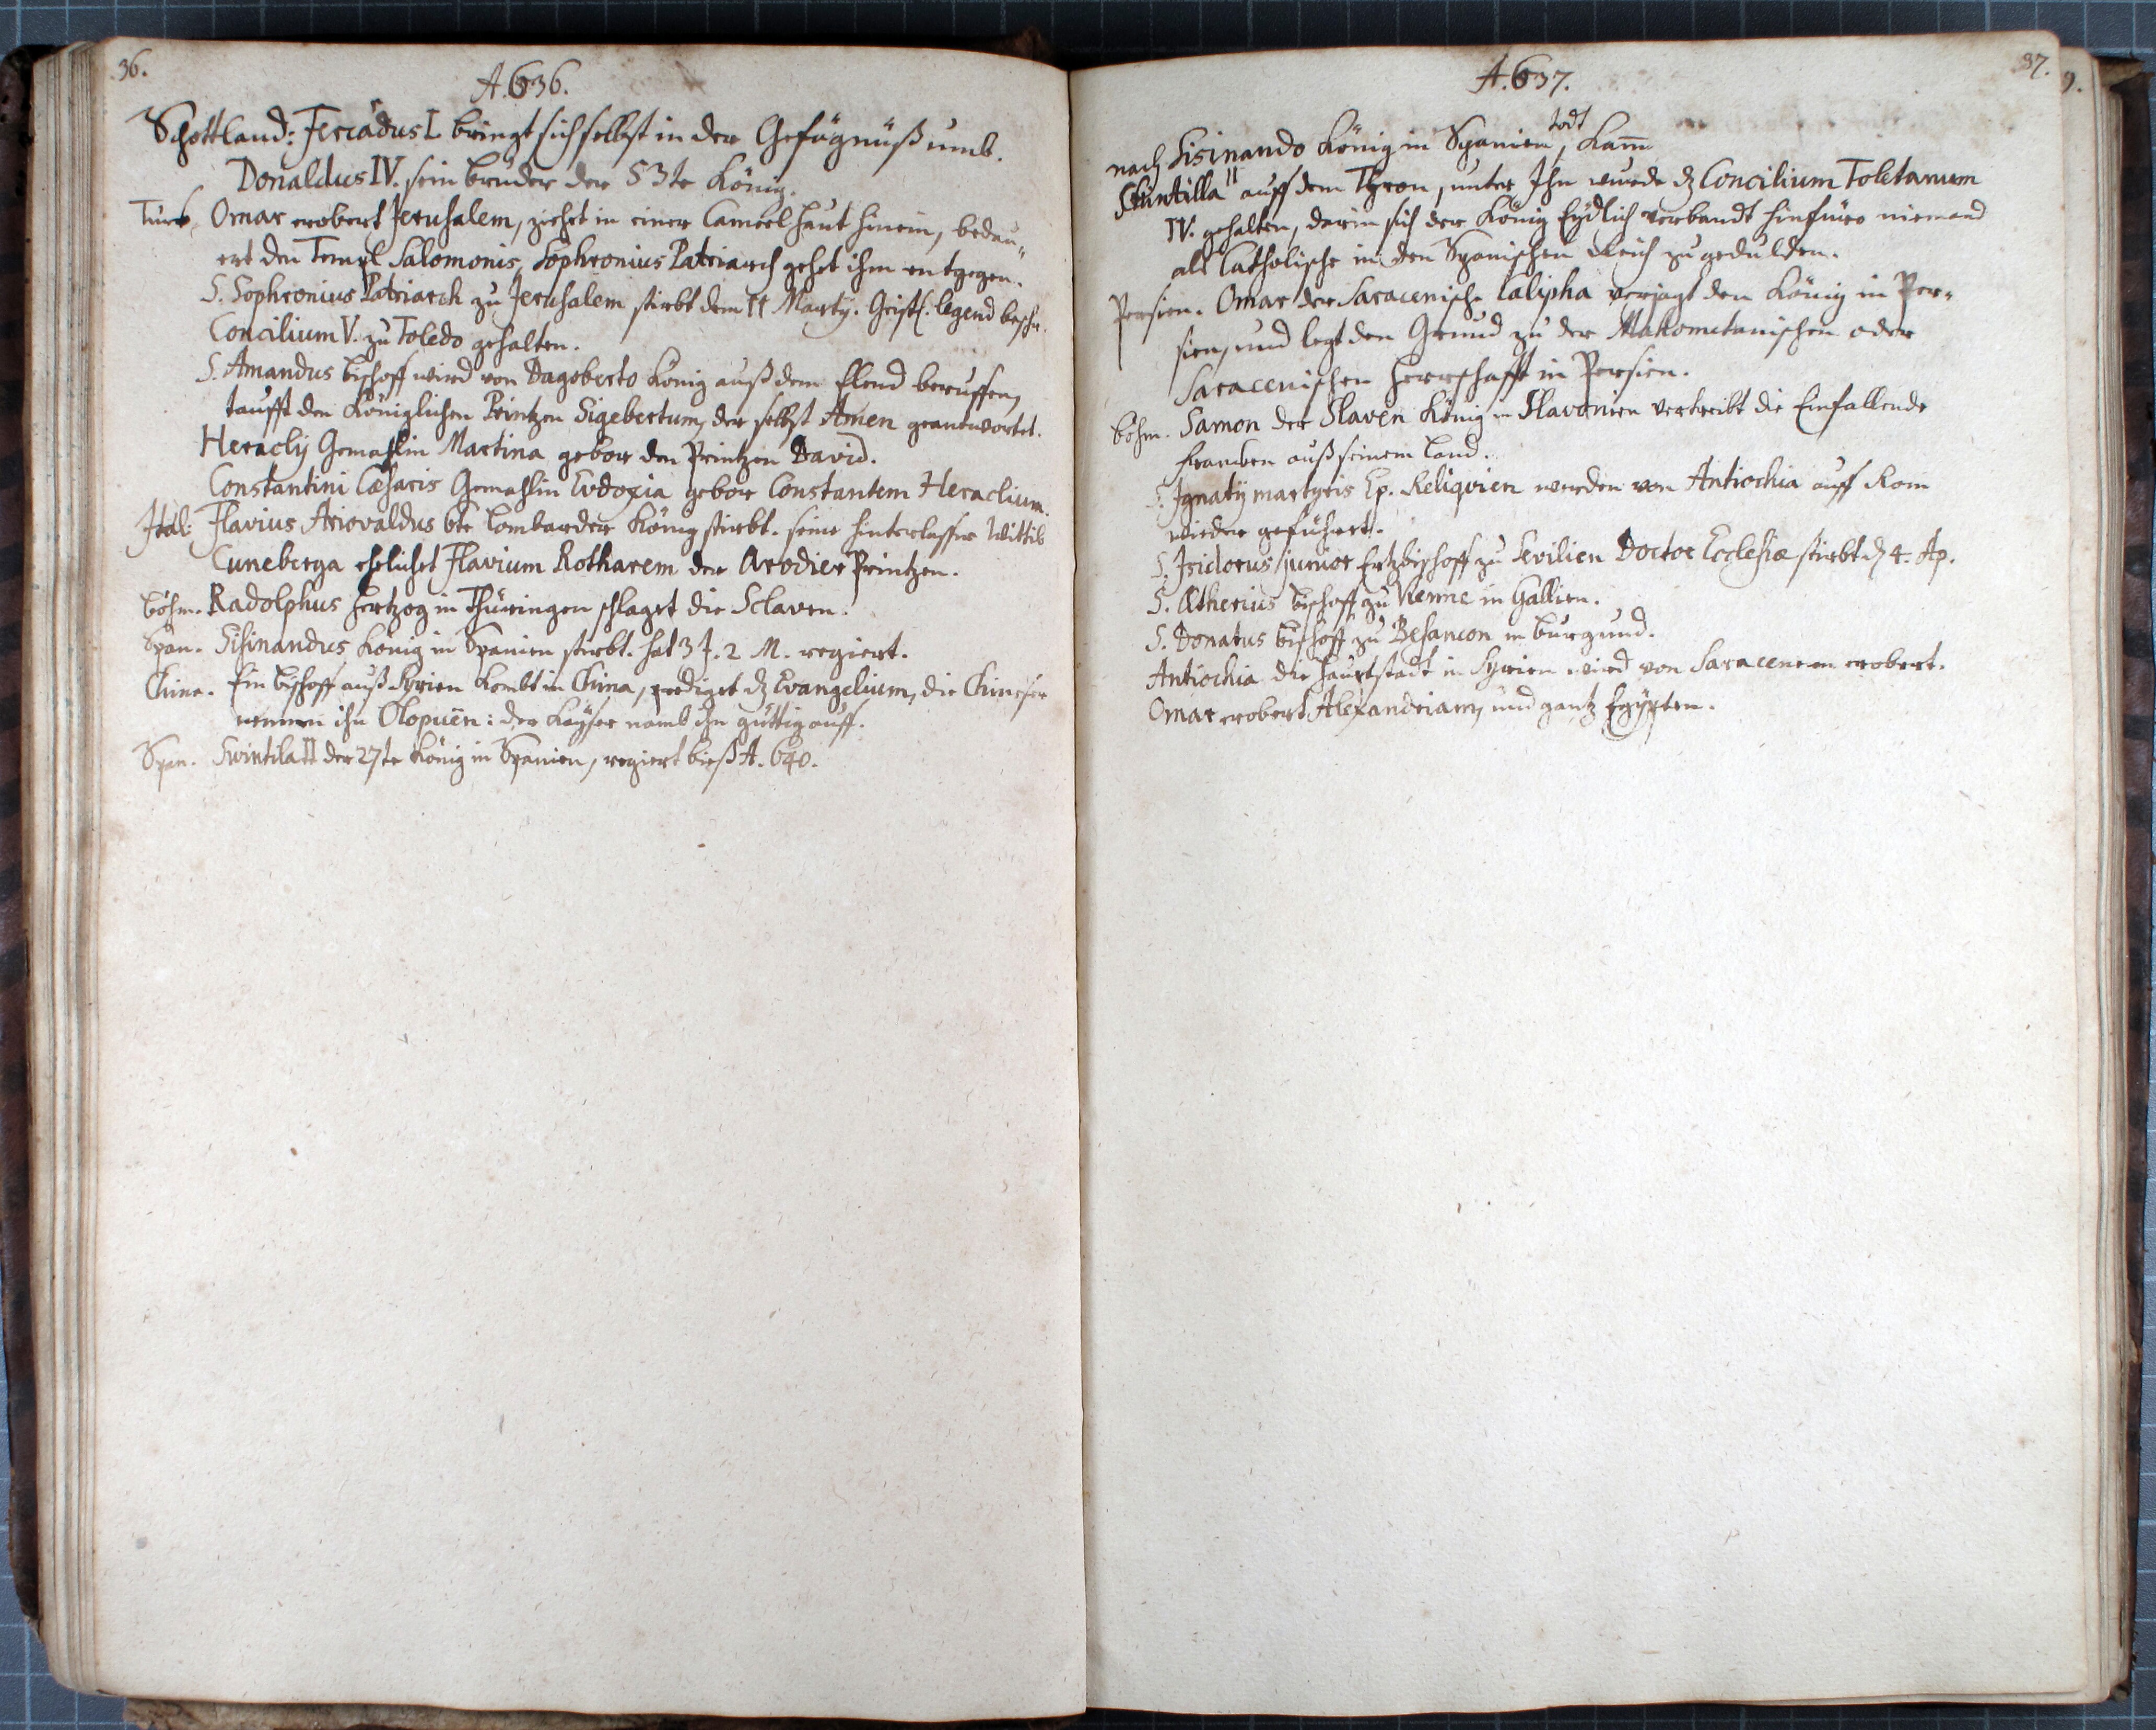 36.
A. 636.
Schottland: Fercadus I. bringt sich selbst in der Gefägnüß umb.
Donaldus IV. sein bruder der 53te König.
Turck. Omar erobert Jerusalem, ziehet in einer Cameel haut hinein, bedau-
ert den Tempel Salomonis, Sophronius Patriarch gehet ihm entgegen.
S. Sophronius Patriarch zu Jerusalem stirbt dem 11 Martÿ. Geistl. legend beschr.
Concilium V. zu Toledo gehalten.
S. Amandus bischoff wird von Dagoberto König auß dem Elend beruffen,
taufft den Königlichen Printzen Sigebertum, der selbst Amen geantwortet.
Heraclÿ Gemahlin Martina gebar den Printzen David.
Constantini Cæsaris Gemahlin Evdoxia gebar Constantem Heraclium.
Ital: Flavius Ariovaldus 6te Lombarder König stirbt. seine hinterlassne Wittib
Cuneberga ehelichet Flavium Rotharem der Arodier Printzen.
böhm. Radolphus Hertzog in Thüringen schlaget die Sclaven.
Span. Sisinandus König in Spanien stirbt. hat 3 J. 2 M. regiert.
China. Ein bischoff auß Syrien kombt in China, prediget dz Evangelium, die Chineser
nennen ihn Olopuën: der Kayser namb ihn güttig auff.
Span. Svintila II der 27te König in Spanien, regiert bieß A. 640.
37.
9.
A. 637.
nach Sisinando König in Spanien todt, kam̄
Stuntilla II auff dem Thron, unter Ihn wurde dz Concilium Toletanum
IV. gehalten, darin sich der König Eydlich verbandt hinfüro niemand
als Catholische in den Spanischen Reich zu gedulden.
Persien. Omar der Saracenische Calipha verjagt den König in Per-
sien, und legt den Grund zu der Mahometanischen oder
Saracenischen Herrschafft in Persien.
böhm. Samon der Slaven König in Slavonien vertreibt die Einfallende
Francken auß seinem Land.
S. Ignatÿ martyris Ep. Reliqvien werden von Antiochia auff Rom
wieder geführet.
S. Isidorus junior Ertzbischoff zu Sevilien Doctor Ecclesiæ stirbt dz 4. Ap.
S. Ætherius bischoff zu Vienne in Gallien.
S. Donatus bischoff zu Besancon in burgund.
Antiochia die Hauptstadt in Syrien wird von Saracenern erobert.
Omar erobert Alexandriam, und gantz Egÿpten.